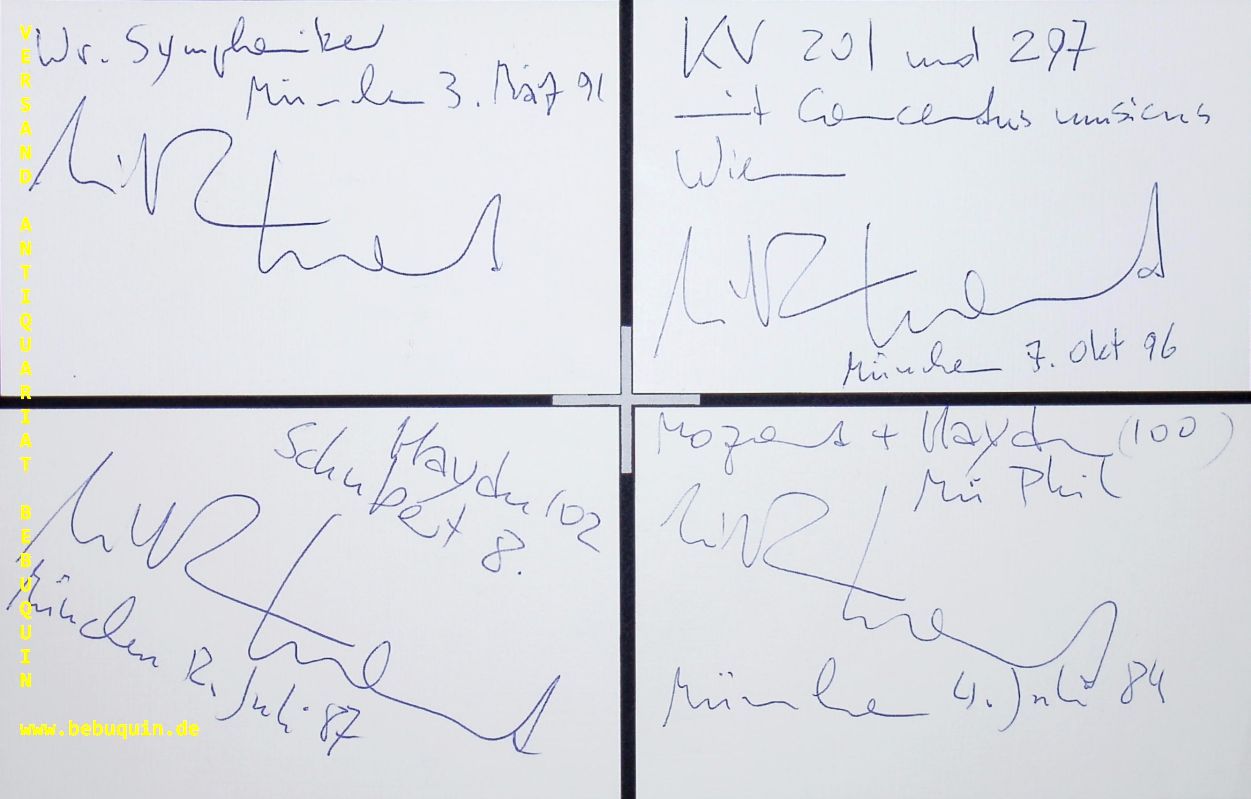 Wr. Symphoniker
München 3. März 91
KV 201 und 297
mit Concentus musicus
Wien
München 7. Okt 96
Haydn 102
Schubert 8.
München 12. Juli 87
Mozart + Haydn (100)
Mü Phil
München 4. Juli 84
VERSAND ANTIQUARIAT BEBUQUIN
www.bebuquin.de